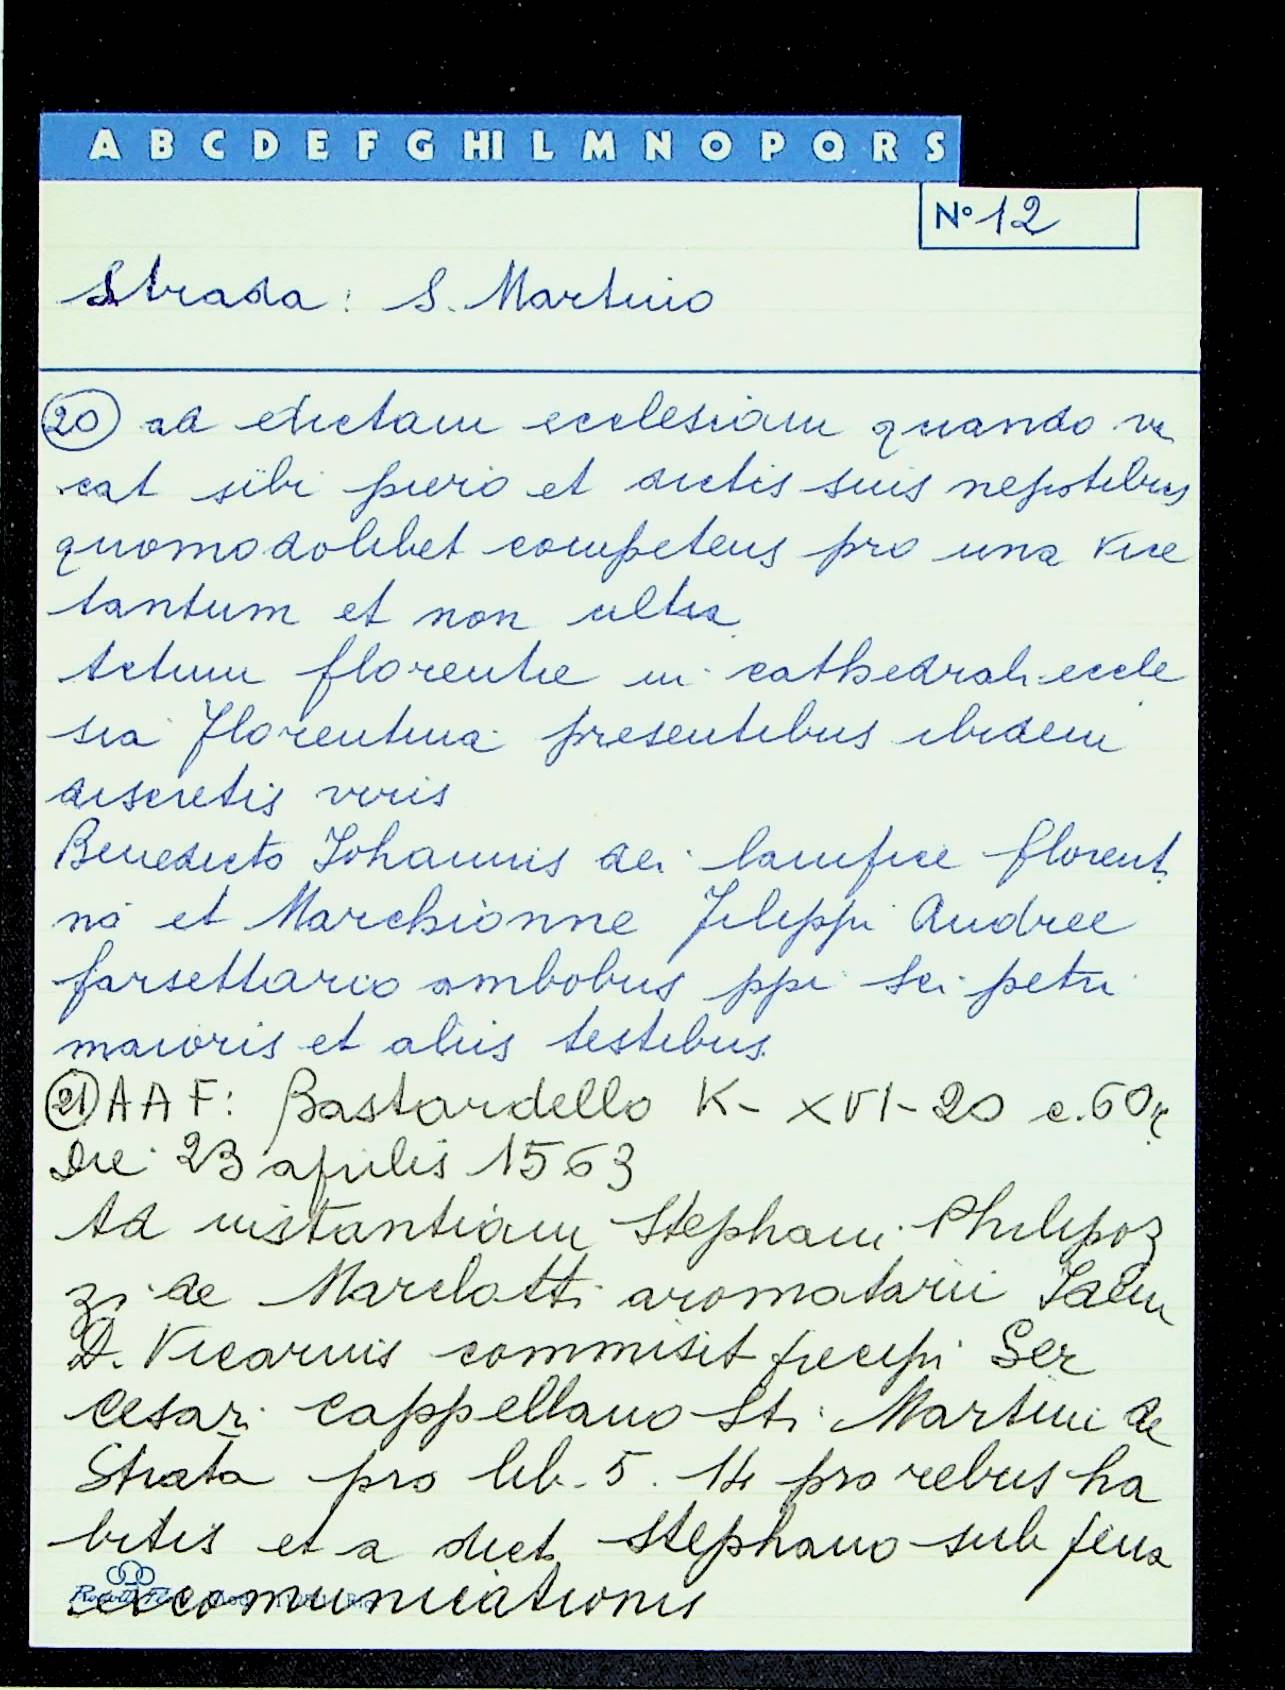 A B C D E F G HI L M N O P Q R S
N° 12
Strada: S. Martino
20 ad dictam ecclesiam quando va
cat sibi puero et dictis suis nepotibus
quomodolibet competens pro una vice
tantum et non ultra
Actum florentie in cathedrali eccle
sia florentina presentibus ibidem
discretis viris
Benedicto Iohannis dei lanifice florent
no et Marchionne Filippi Andree
farsettario ambobus ppi Sci petri
maioris et aliis testibus
21 AAF: Bastardello K- XVI-20 c. 60r
Die 23 aprilis 1563
Ad instantiam Stephani Philipoz
zi de Marclotti aromatarii
D. Vicarius commisit precipi Ser
Cesari cappellano Sti Martini de
Strata pro lib. 5. 14 pro rebus ha
bitis et a dict. Stephano sub pena
excomunicationis